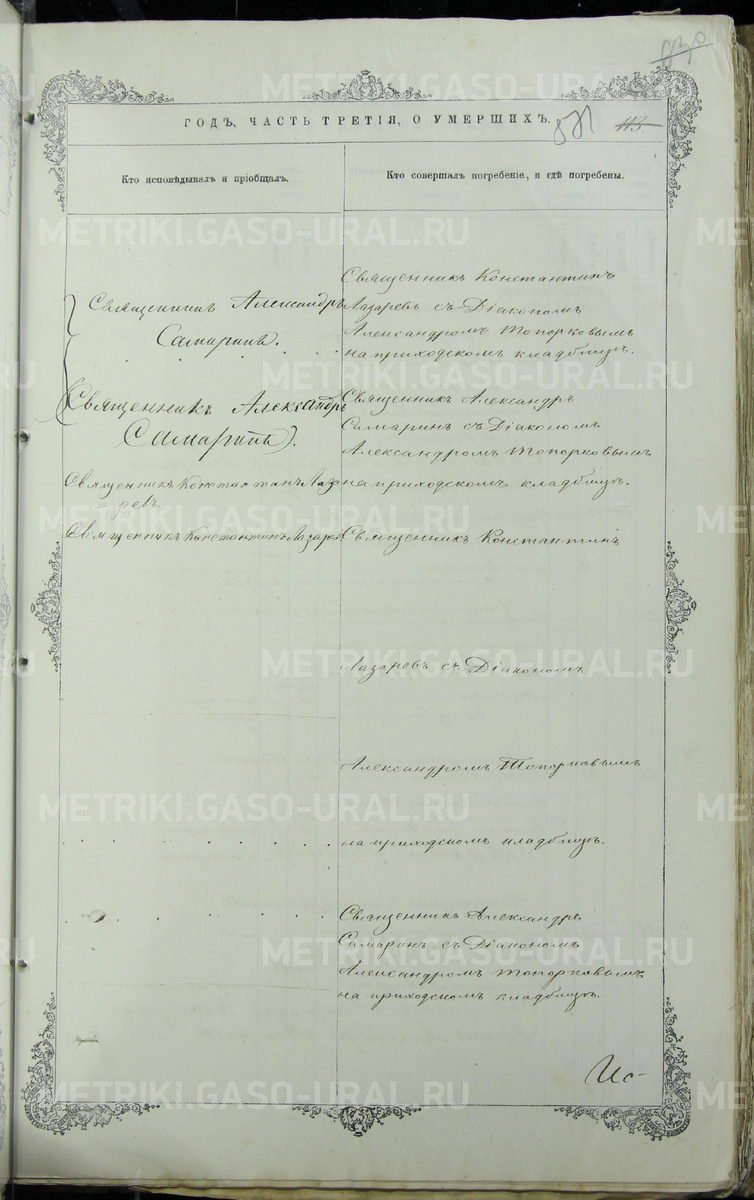 ГОДЪ, ЧАСТЬ ТРЕТІЯ, О УМЕРШИХЪ.
113
Кто исповѣдывалъ и пріобщалъ.
Кто совершалъ погребеніе, и гдѣ погребены.
Священникъ Александръ
Самаринъ.
Священникъ Александръ
Самаринъ.
Священникъ Константинъ Лаза
=ревъ.
Священникъ Константинъ Лазаревъ
Священникъ Константинъ
Лазаревъ съ Діакономъ
Александромъ Топорковымъ
на приходскомъ кладбищѣ.
Священникъ Александръ
Самаринъ съ Діакономъ
Александромъ Топорковымъ
на приходскомъ кладбищѣ.
Священникъ Константинъ
Лазаревъ съ Діакономъ
Александромъ Топорковымъ
на приходскомъ кладбищѣ.
Священникъ Александръ
Самаринъ съ Діакономъ
Александромъ Топорковымъ
на приходскомъ кладбищѣ.
METRIKI.GASO-URAL.RU